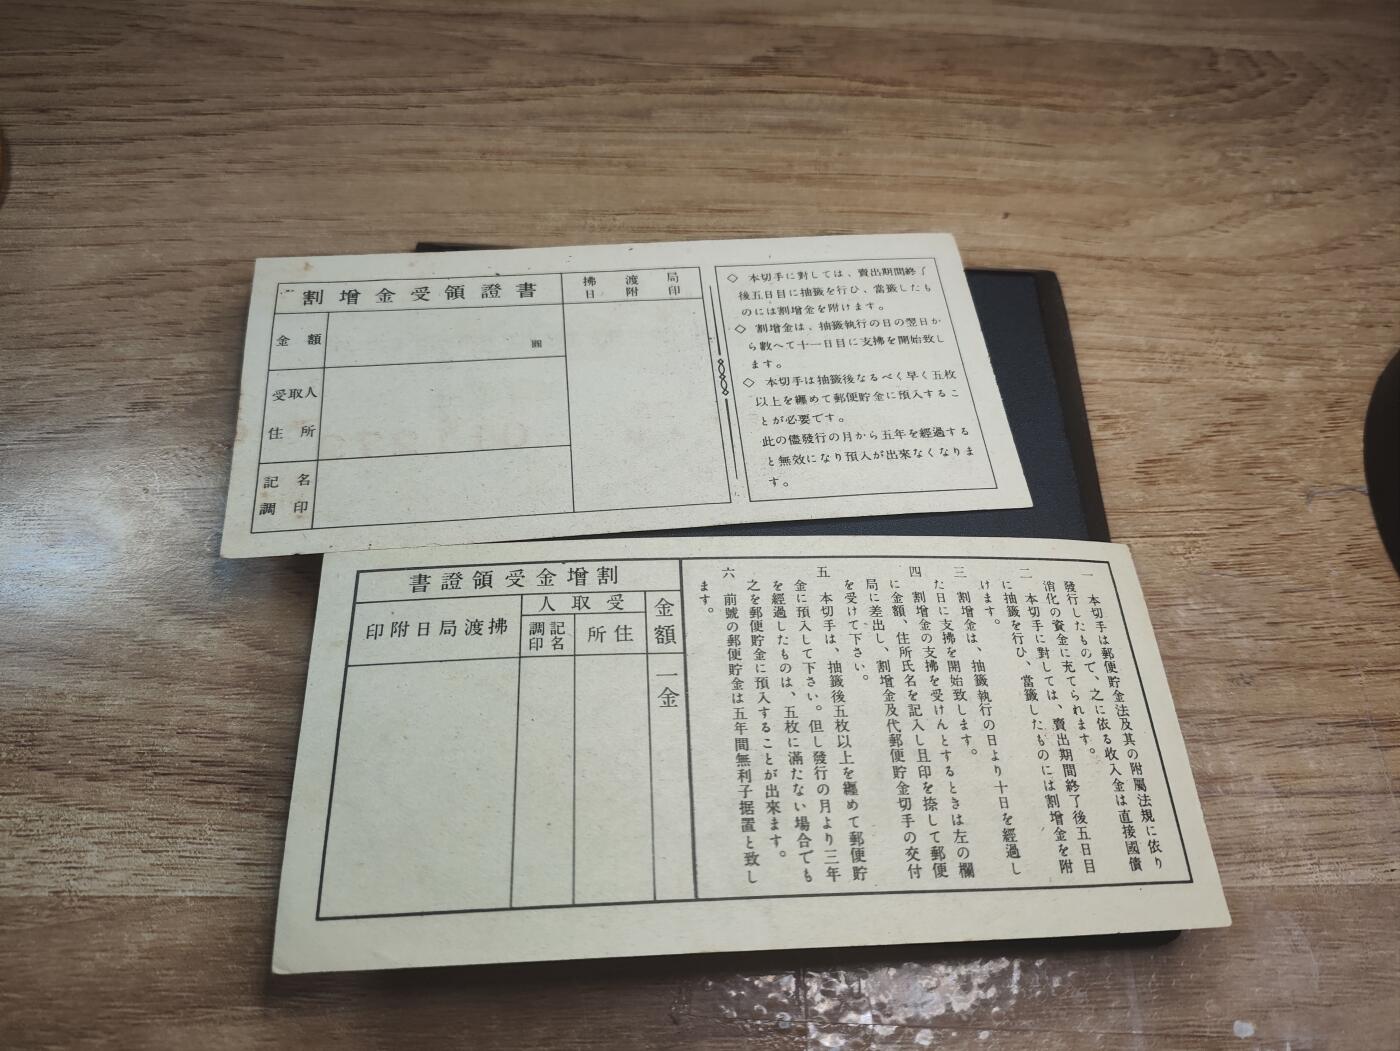 割増金受領證書
拂渡局
日附印
金額
圓
受取人
住所
記名
調印
◇ 本切手に對しては、賣出期間終了
後五日目に抽籤を行ひ、當籤したも
のには割增金を附けます。
◇ 割增金は、抽籤執行の日の翌日か
ら數へて十一日目に支拂を開始致し
ます。
◇ 本切手は抽籤後なるべく早く五枚
以上を纏めて郵便貯金に預入するこ
とが必要です。
此の儘發行の月から五年を經過する
と無效になり預入が出來なくなりま
す。
一 本切手は郵便貯金法及其の附屬法規に依り
發行したもので、之に依る收入金は直接國債
消化の資金に充てられます。
二 本切手に對しては、賣出期間終了後五日目
に抽籤を行ひ、當籤したものには割增金を附
けます。
三 割增金は、抽籤執行の日より十日を經過し
た日に支拂を開始致します。
四 割增金の支拂を受けんとするときは左の欄
に金額、住所氏名を記入し且印を捺して郵便
局に差出し、割增金及代郵便貯金切手の交付
を受けて下さい。
五 本切手は、抽籤後五枚以上を纏めて郵便貯
金に預入して下さい。但し發行の月より三年
を經過したものは、五枚に滿たない場合でも
之を郵便貯金に預入することが出來ます。
六 前號の郵便貯金は五年間無利子据置と致し
ます。
書證領受金增割
金額
一金
人取受
所住
記名
調印
印附日局渡拂